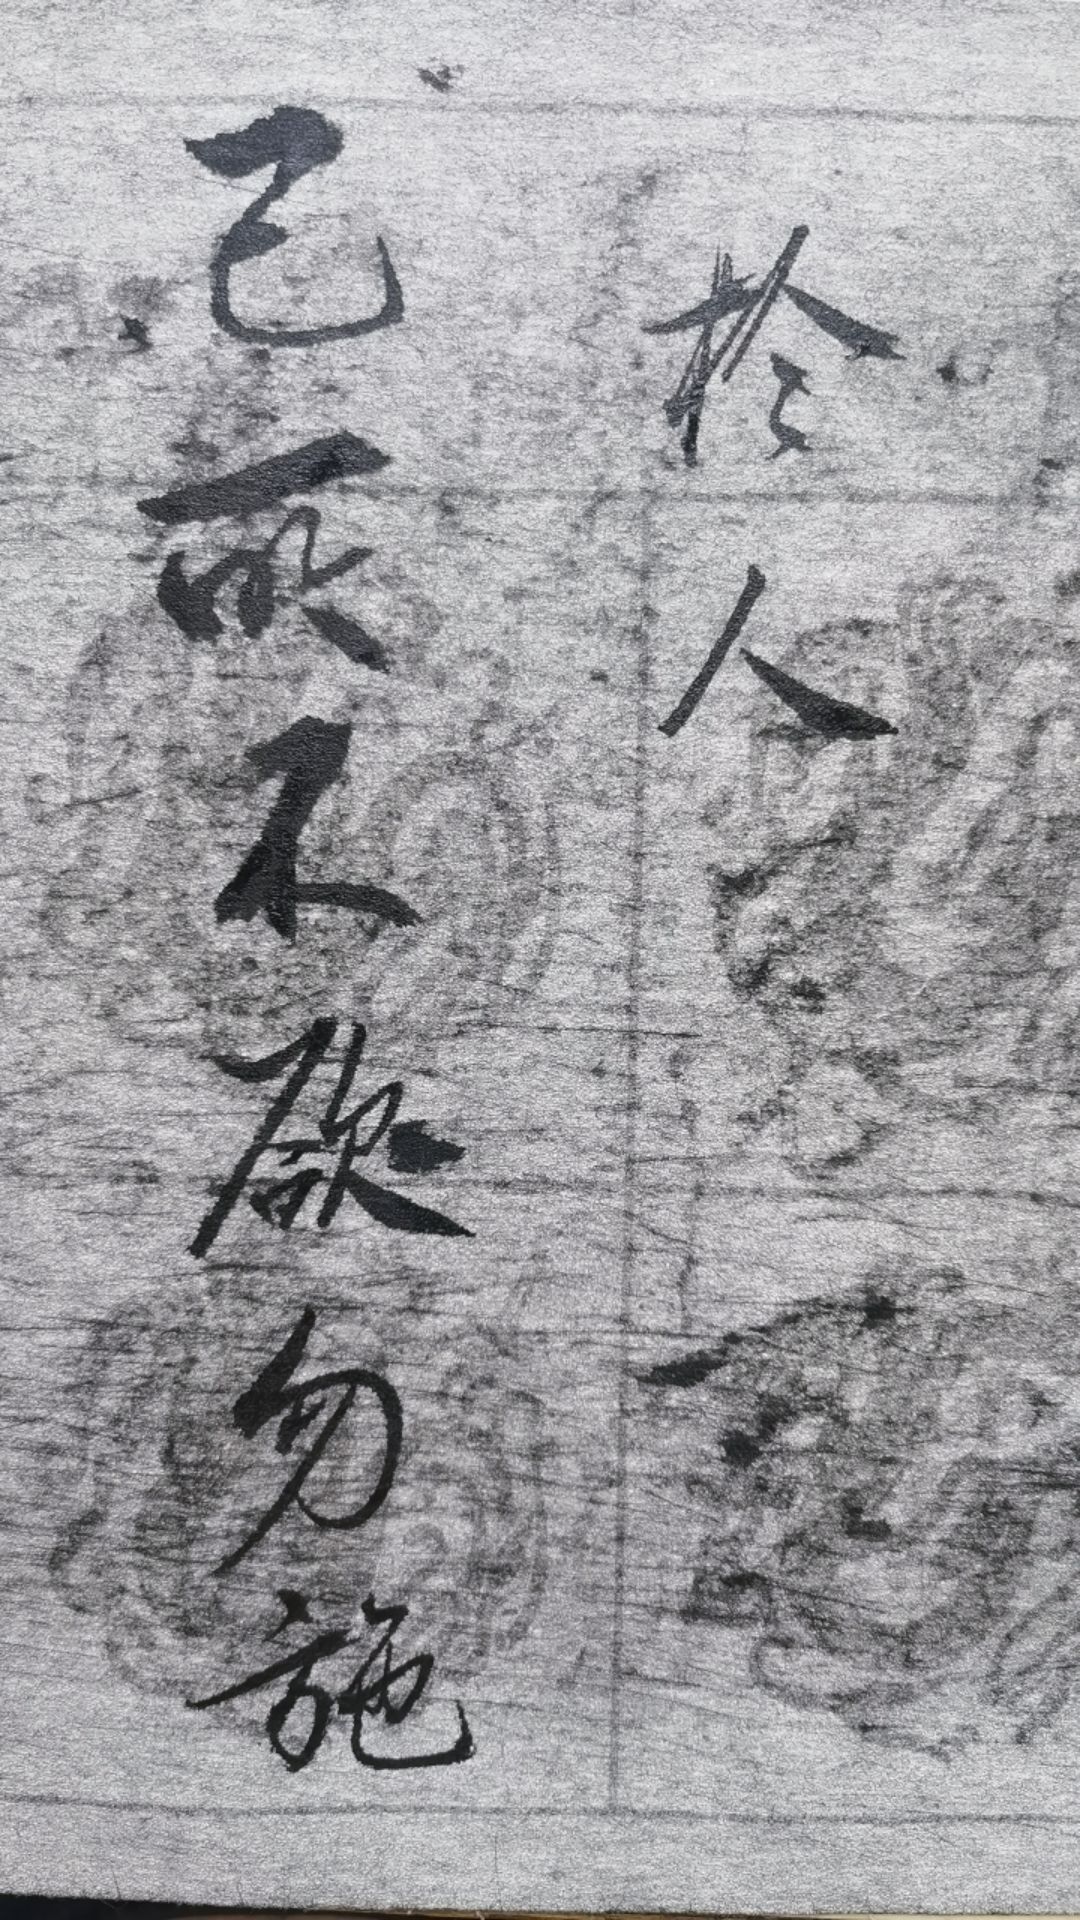 己所不欲勿施
於人